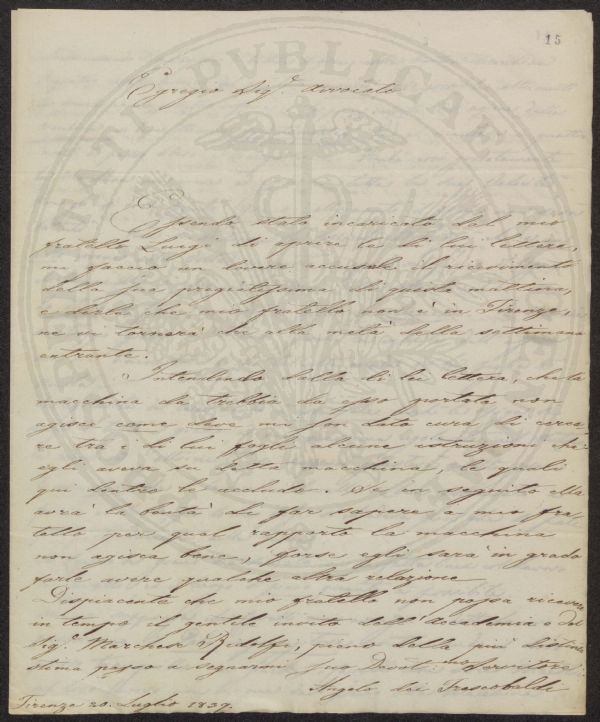 15
Egregio Sig.r Avvocato
Essendo stato incaricato dal mio
fratello Luigi di aprire le di lui lettere,
mi faccio un dovere accusarle il ricevimento
della sua pregiatissima di questa mattina,
e dirle che mio fratello non è in Firenze,
ne vi tornerà che alla metà della settimana
entrante.
Intendendo dalla di lei lettera, che la
macchina da trebbia da esso portata non
agisce come deve mi son dato cura di cerca
re tra i di lui fogli alcune istruzioni che
egli aveva su detta macchina, le quali
qui dentro le accludo. Se in seguito Ella
avrà la bontà di far sapere a mio fra
tello per qual rapporto la macchina
non agisca bene, forse egli sarà in grado
forle avere qualche altra relazione
Dispiacente che mio fratello non possa ricevere
in tempo il gentile invito dell'Accademia e del
Sig.r Marchese Ridolfi, pieno della più distinta
stima passo a segnarmi Suo Devot.mo Servitore
Angelo dei Frescobaldi
Firenze 20. Luglio 1839.
PVBLICAE